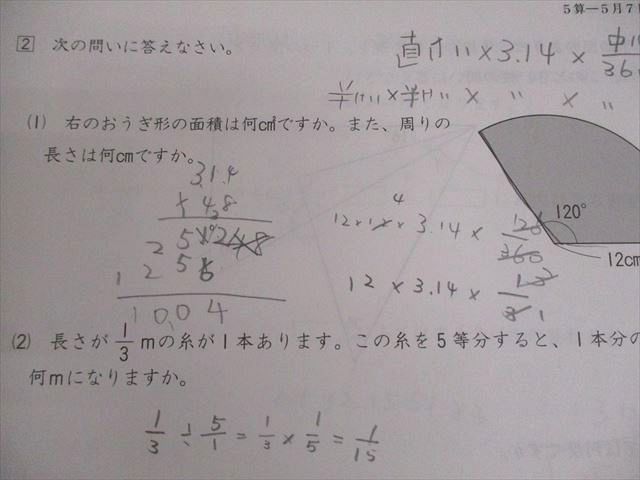 5算―5月7
2 次の問いに答えなさい。
直けい×3.14×中心/360
半けい×半けい × 〃 × 〃
(1) 右のおうぎ形の面積は何cm²ですか。また、周りの
長さは何cmですか。
3.14
× 48
2512
1256
1 0.0 4
12×12×3.14×120/360
12×3.14×1/3
120°
12cm
(2) 長さが1/3mの糸が1本あります。この糸を5等分すると、1本分の
何mになりますか。
1/3 ÷ 5/1 = 1/3 × 1/5 = 1/15